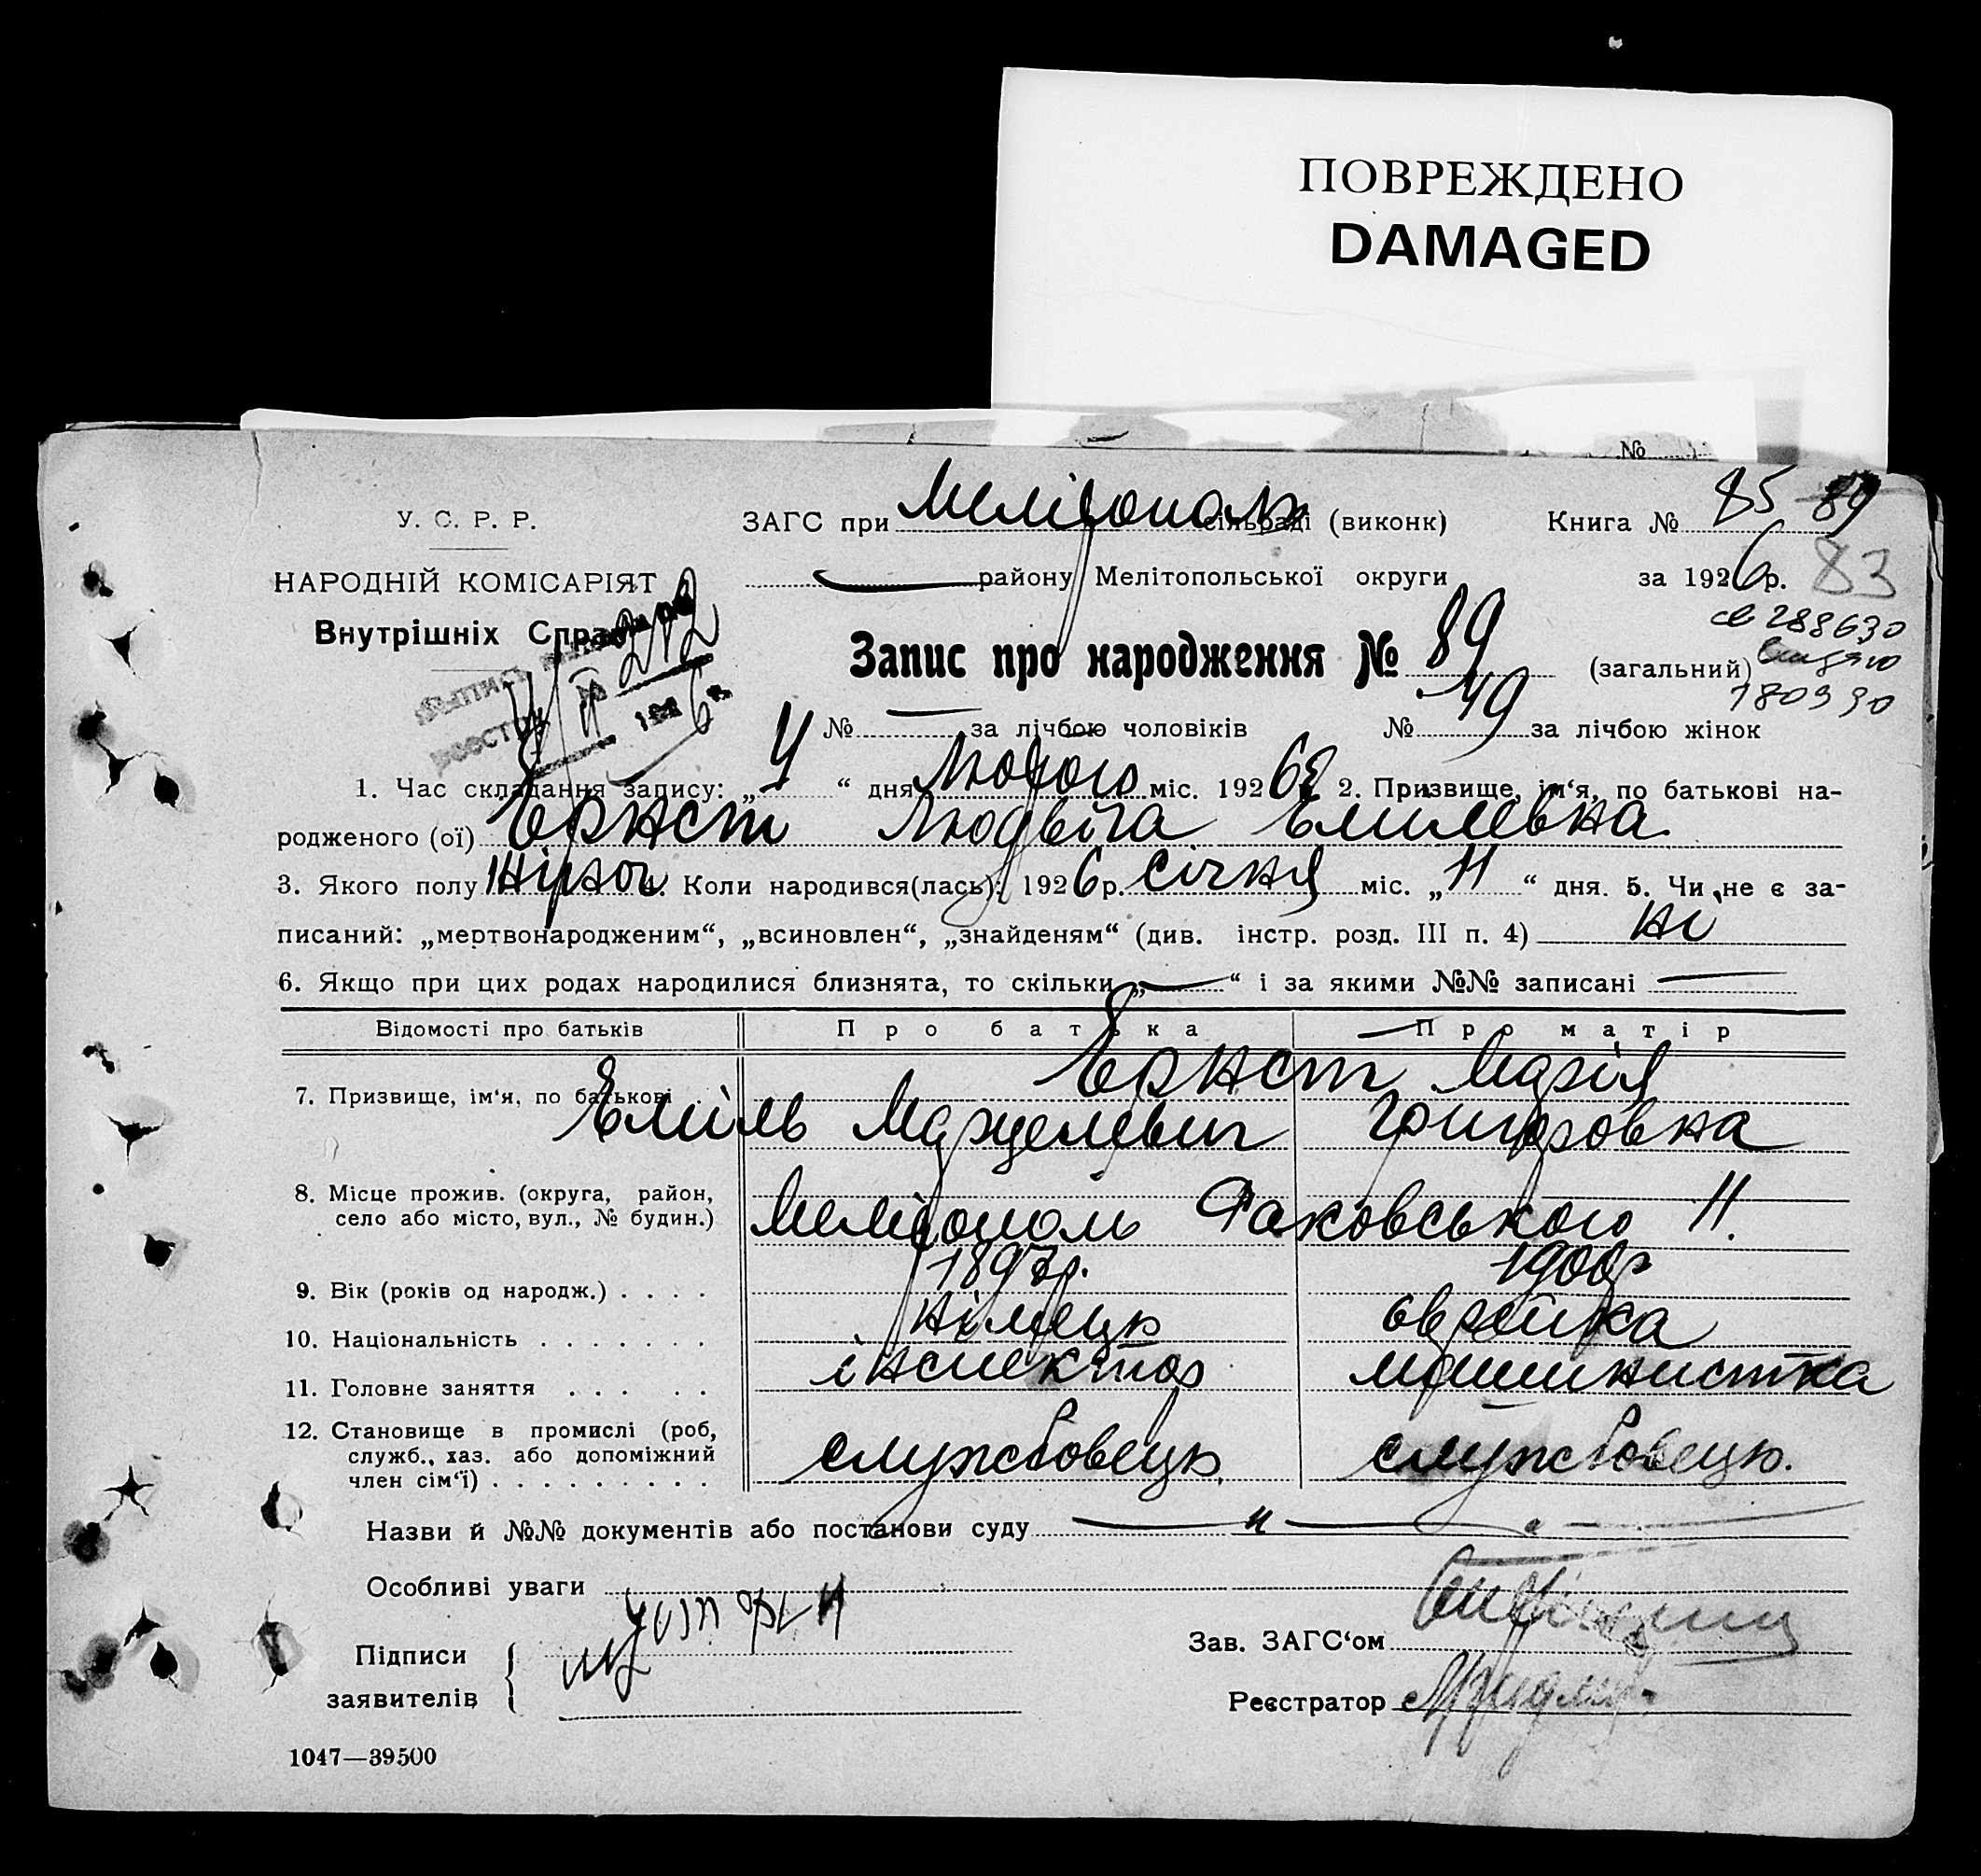 ПОВРЕЖДЕНО
DAMAGED
№
У. С. Р. Р.
ЗАГС при Мелітополь сільраді (виконк)
Книга № 85 89
НАРОДНІЙ КОМІСАРІЯТ
району Мелітопольської округи
за 1926 р. 83
Внутрішніх Справ
св 288630
Запис про народження № 89 (загальний)
180330
№ — за лічбою чоловіків № 49 за лічбою жінок
1. Час складання запису: „4“ дня Лютого міс. 1926 р. 2. Призвище, ім'я, по батькові на-
родженого (ої) Ернст Людвіга Емилевна
3. Якого полу жіноч 4. Коли народився(лась): 1926 р. січня міс. „11“ дня. 5. Чи не є за-
писаний: „мертвонародженим“, „всиновлен“, „знайденям“ (див. інстр. розд. III п. 4) ні
6. Якщо при цих родах народилися близнята, то скільки „—“ і за якими №№ записані —
Відомості про батьків Про батька Про матір
7. Призвище, ім'я, по батькові
Ернст Марія
Еміль Марцелевич Григоровна
8. Місце прожив. (округа, район,
село або місто, вул., № будин.) Мелітополь Раковського 11.
9. Вік (років од народж.) . . . . 1897р. 1900р
10. Національність . . . . . . . німець еврейка
11. Головне заняття . . . . . . інспектор машинистка
12. Становище в промислі (роб,
служб., хаз. або допоміжний
член сім'ї) . . . . . . . . . службовець службовець.
Назви й №№ документів або постанови суду — „ —
Особливі уваги
Підписи
заявителів
Зав. ЗАГС'ом
Реєстратор
1047—39500